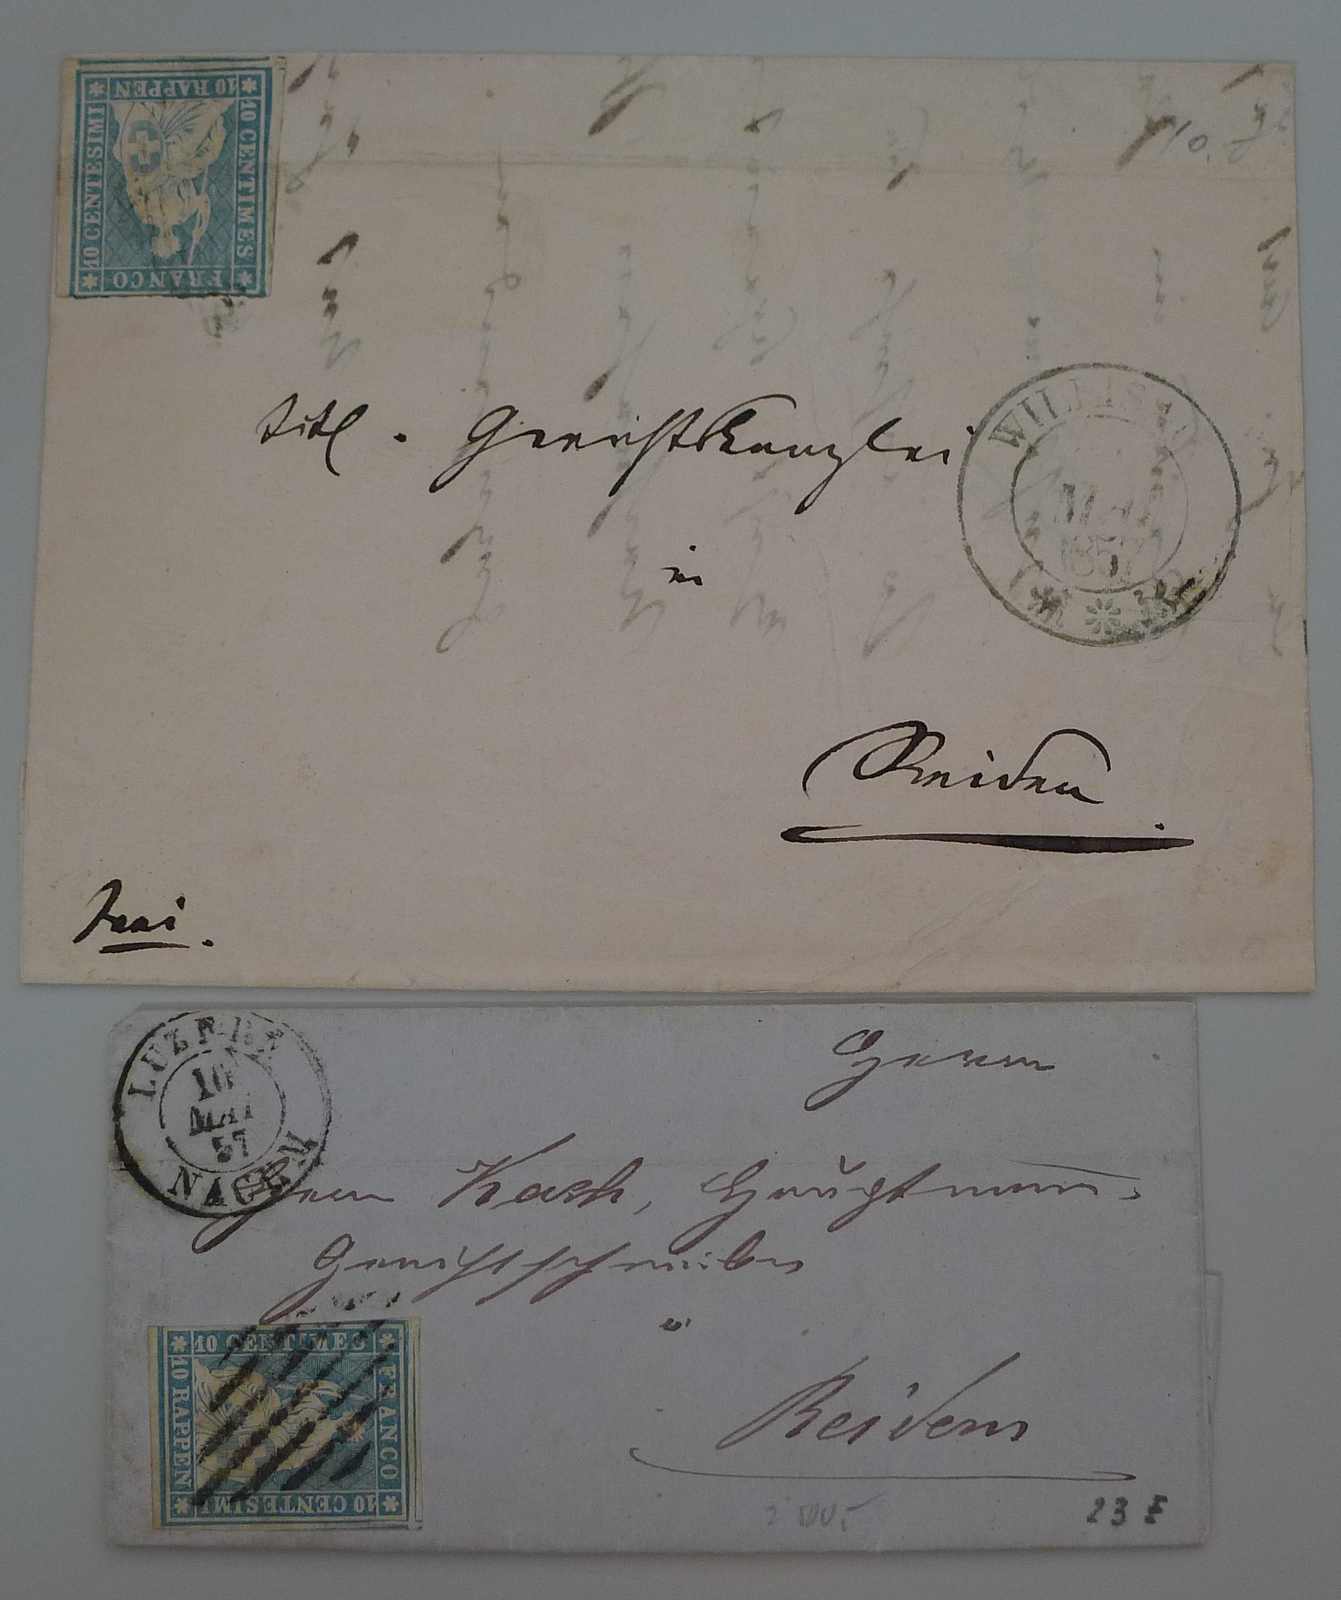 10 RAPPEN
10 CENTIMES
10 CENTESIMI
FRANCO
WILLISAU
MAI
1857
Titl. Gerichtskanzlei
in
Reiden
frei.
LUZERN
16
MAI
57
NACHM
Herrn
Herrn Kach, Hauptmann,
Gerichtschreiber
Reiden
10 CENTIMES
FRANCO
10 RAPPEN
10 CENTESIMI
23 E